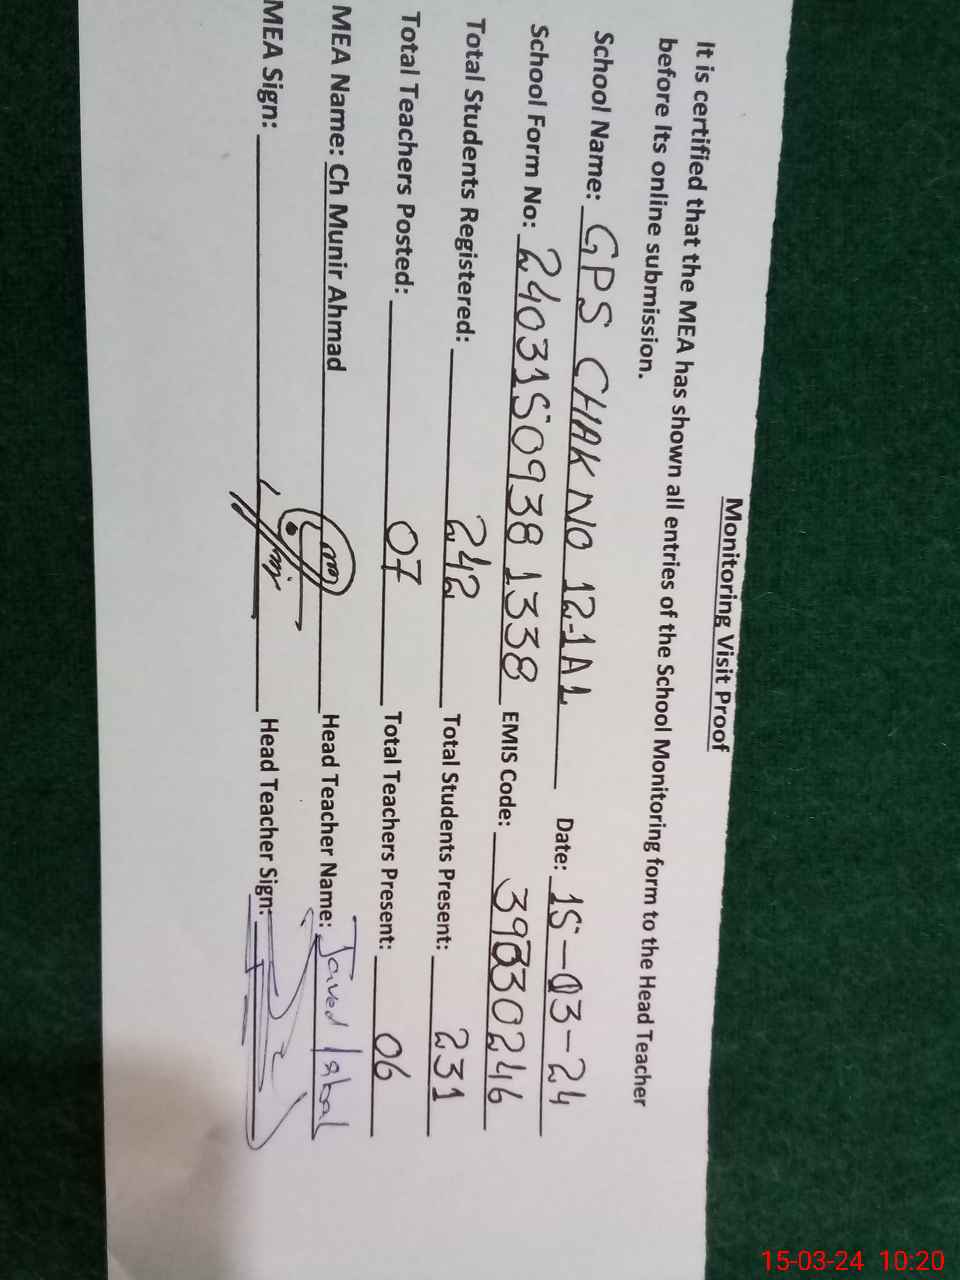 Monitoring Visit Proof
It is certified that the MEA has shown all entries of the School Monitoring form to the Head Teacher
before Its online submission.
School Name: GPS CHAK NO 12-1A1 Date: 15-03-24
School Form No: 2403150938 1338 EMIS Code: 39330246
Total Students Registered: 242 Total Students Present: 231
Total Teachers Posted: 07 Total Teachers Present: 06
MEA Name: Ch Munir Ahmad Head Teacher Name: Javed Iqbal
MEA Sign: Head Teacher Sign:
15-03-24 10:20